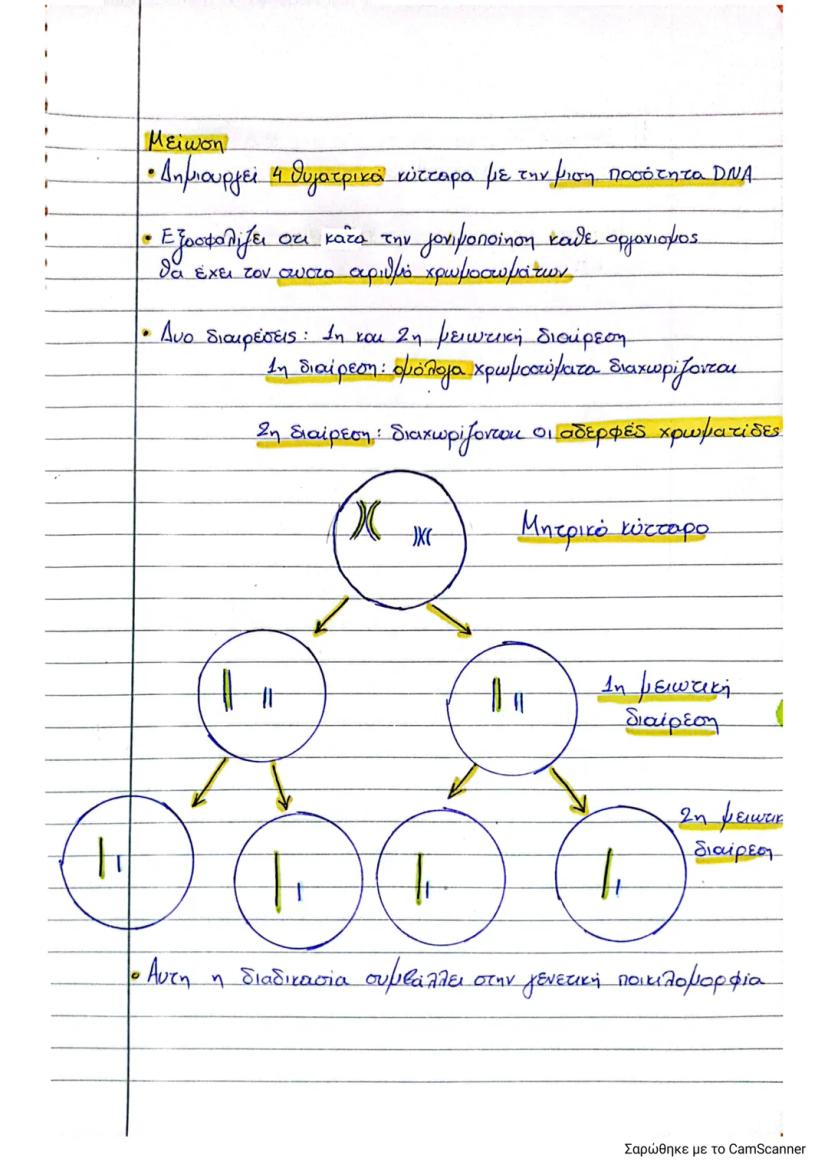 Μείωση
• Δημιουργεί 4 θυγατρικά κύτταρα με την μιση ποσότητα DNA
• Εξασφαλίζει οτι κατα την γονιμοποίηση καθε οργανισμος
θα έχει τον σωστο αριθμό χρωμοσωμάτων
• Δυο διαιρέσεις: 1η και 2η μειωτική διαίρεση
1η διαίρεση: ομόλογα χρωμοσώματα διαχωρίζονται
2η διαίρεση: διαχωρίζονται οι αδερφές χρωματίδες
Μητρικό κύτταρο
1η μειωτική
διαίρεση
2η μειωτικ
διαίρεση
• Αυτη η διαδικασία συμβάλλει στην γενετική ποικιλομορφία
Σαρώθηκε με το CamScanner